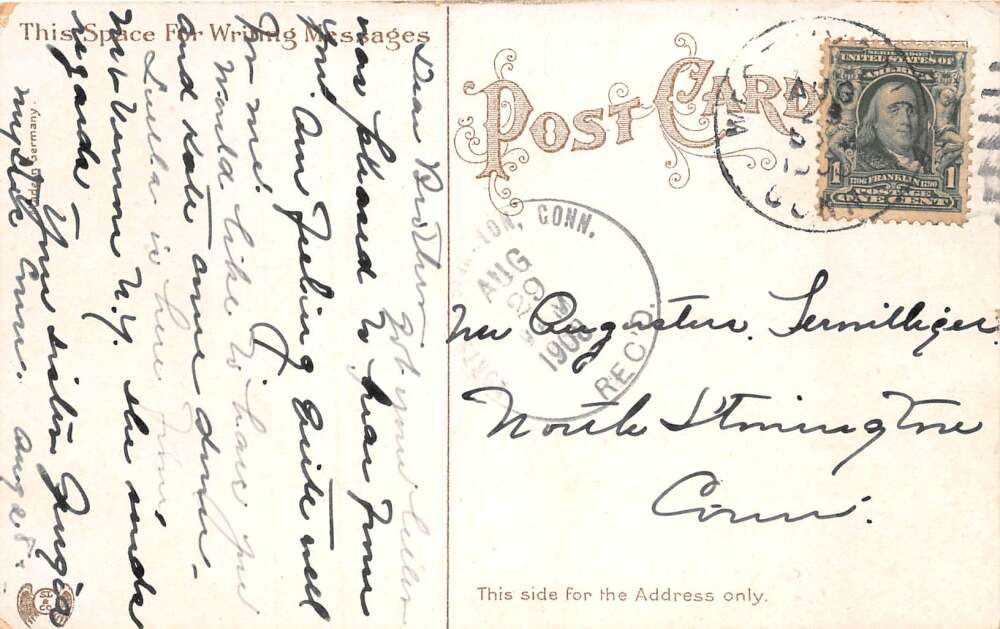 This Space For Writing Messages
Dear Brother. Got your letter
was pleased to hear from
you. Am feeling quite well
for me.
Would like to have you
and Kate come down -
Luella is here from
Mt Vernon N.Y. she sends
regards -
Your sister
Conn. Aug 28.
Germany.
POST CARD
CONN.
AUG
29
1908
REC'D.
AUG
CONN
SERIES 1902
UNITED STATES OF
AMERICA
1706 FRANKLIN 1790
POSTAGE
1
ONE CENT
Mr Augustus Terwilliger
North Stonington
Conn.
This side for the Address only.